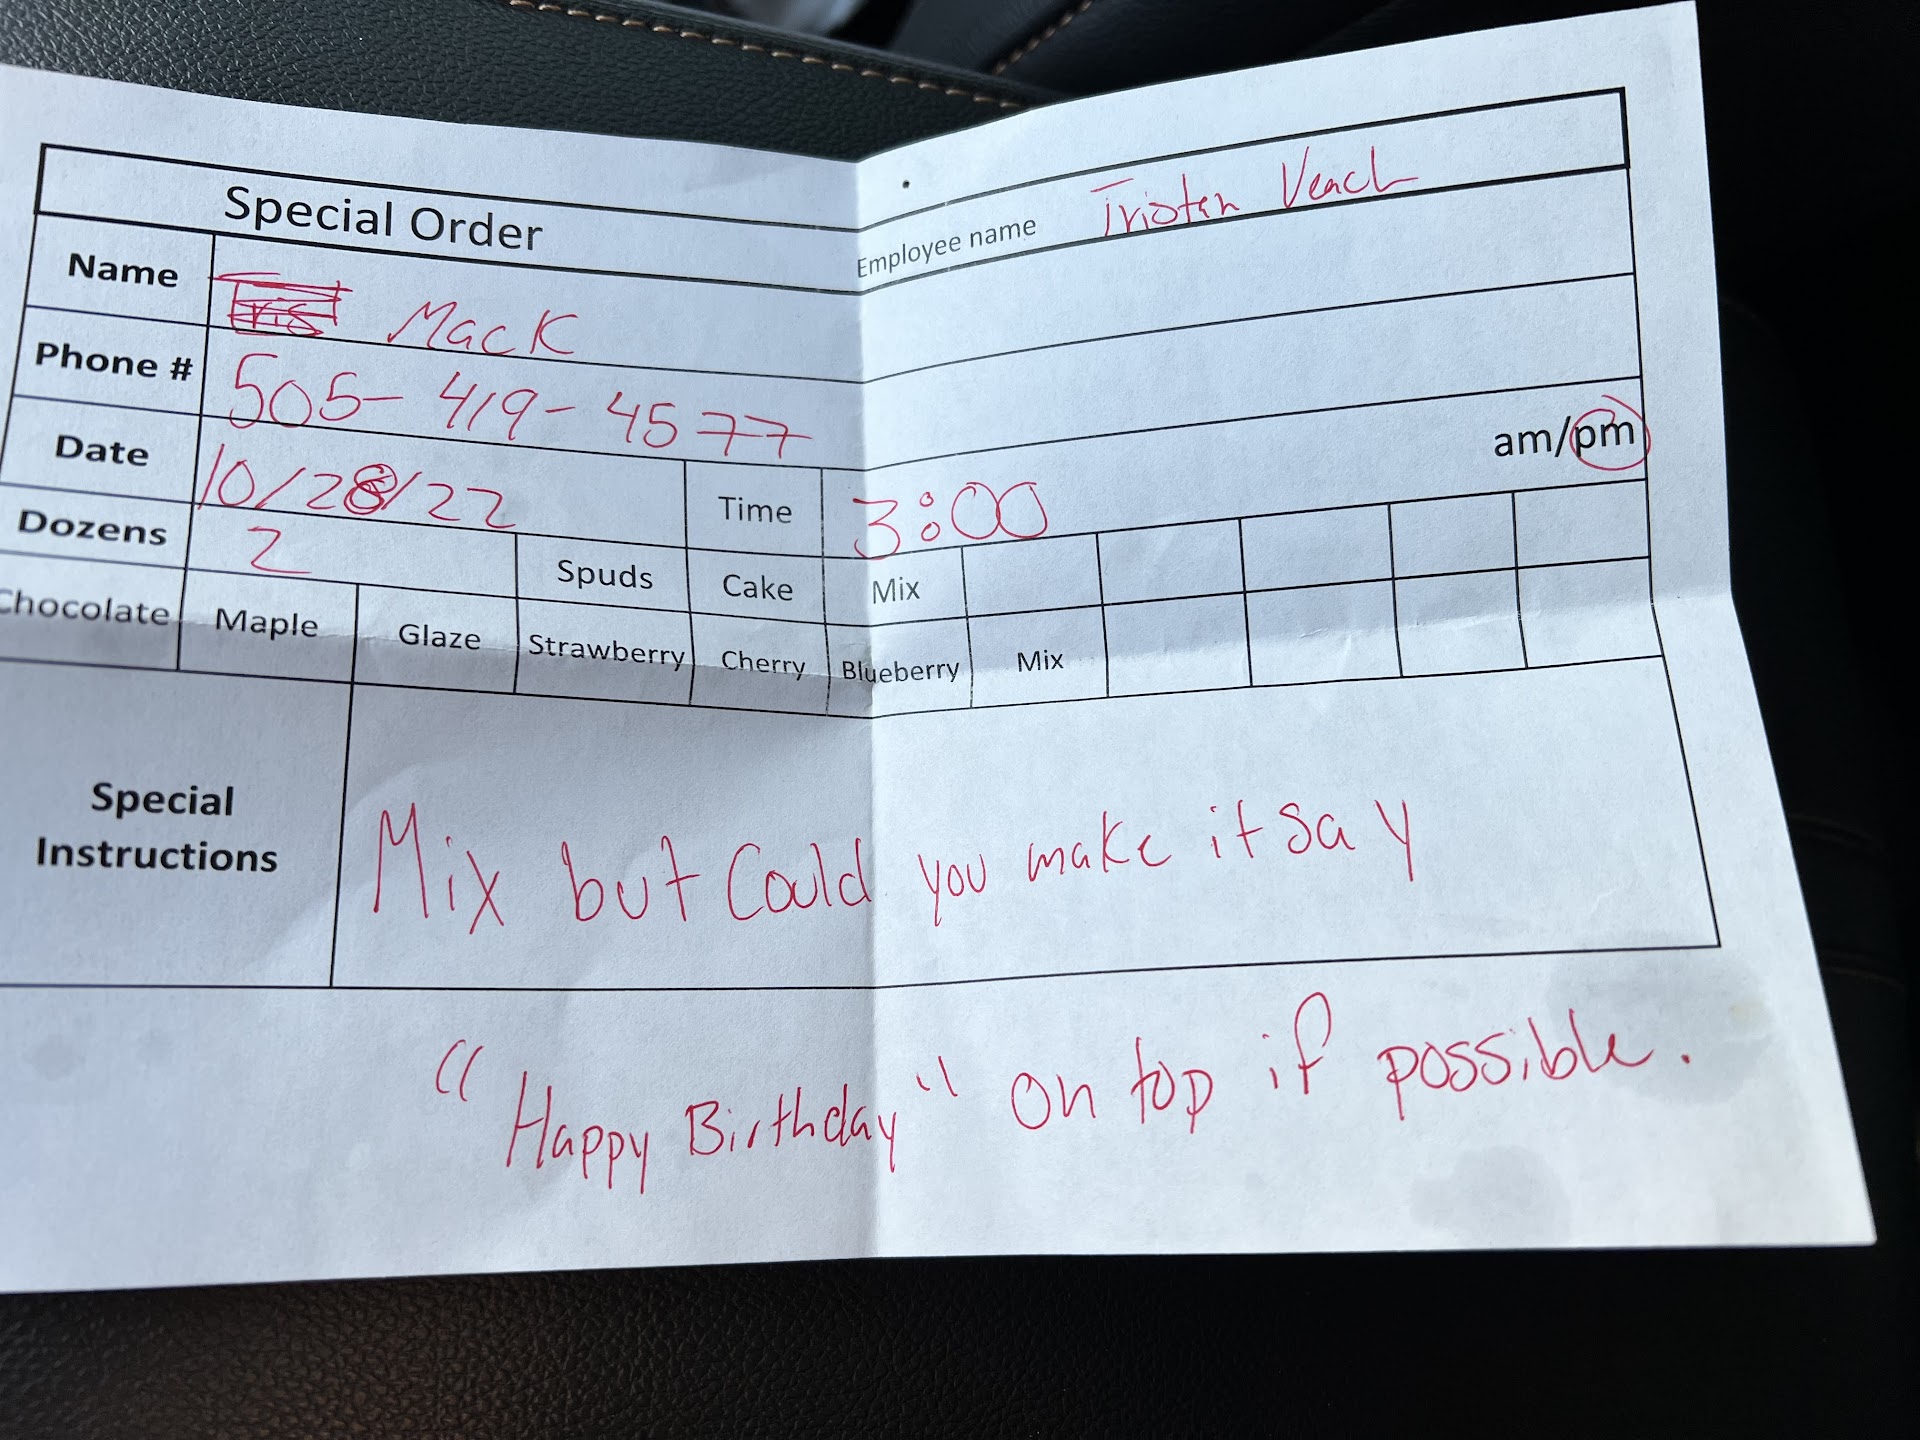 Special Order Employee name Tristan Veach
Name Mack
Phone # 505-419-4577
Date 10/28/22 Time 3:00 am/pm
Dozens 2 Spuds Cake Mix
Chocolate Maple Glaze Strawberry Cherry Blueberry Mix
Special
Instructions
Mix but Could you make it say
"Happy Birthday" on top if possible.